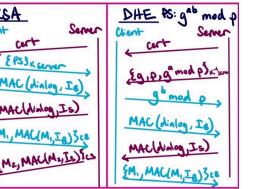 RSA
Server
cert
{PS}K server
MAC(dialog, IB)
MAC(dialog, Is)
M1, MAC(M1, IB)}CB
M2, MAC(M2, Is)}CS
DHE PS: g^ab mod p
Client Server
cert
{g, p, g^a mod p}
g^b mod p
MAC(dialog, IB)
MAC(dialog, Is)
{M1, MAC(M1, IB)}CB